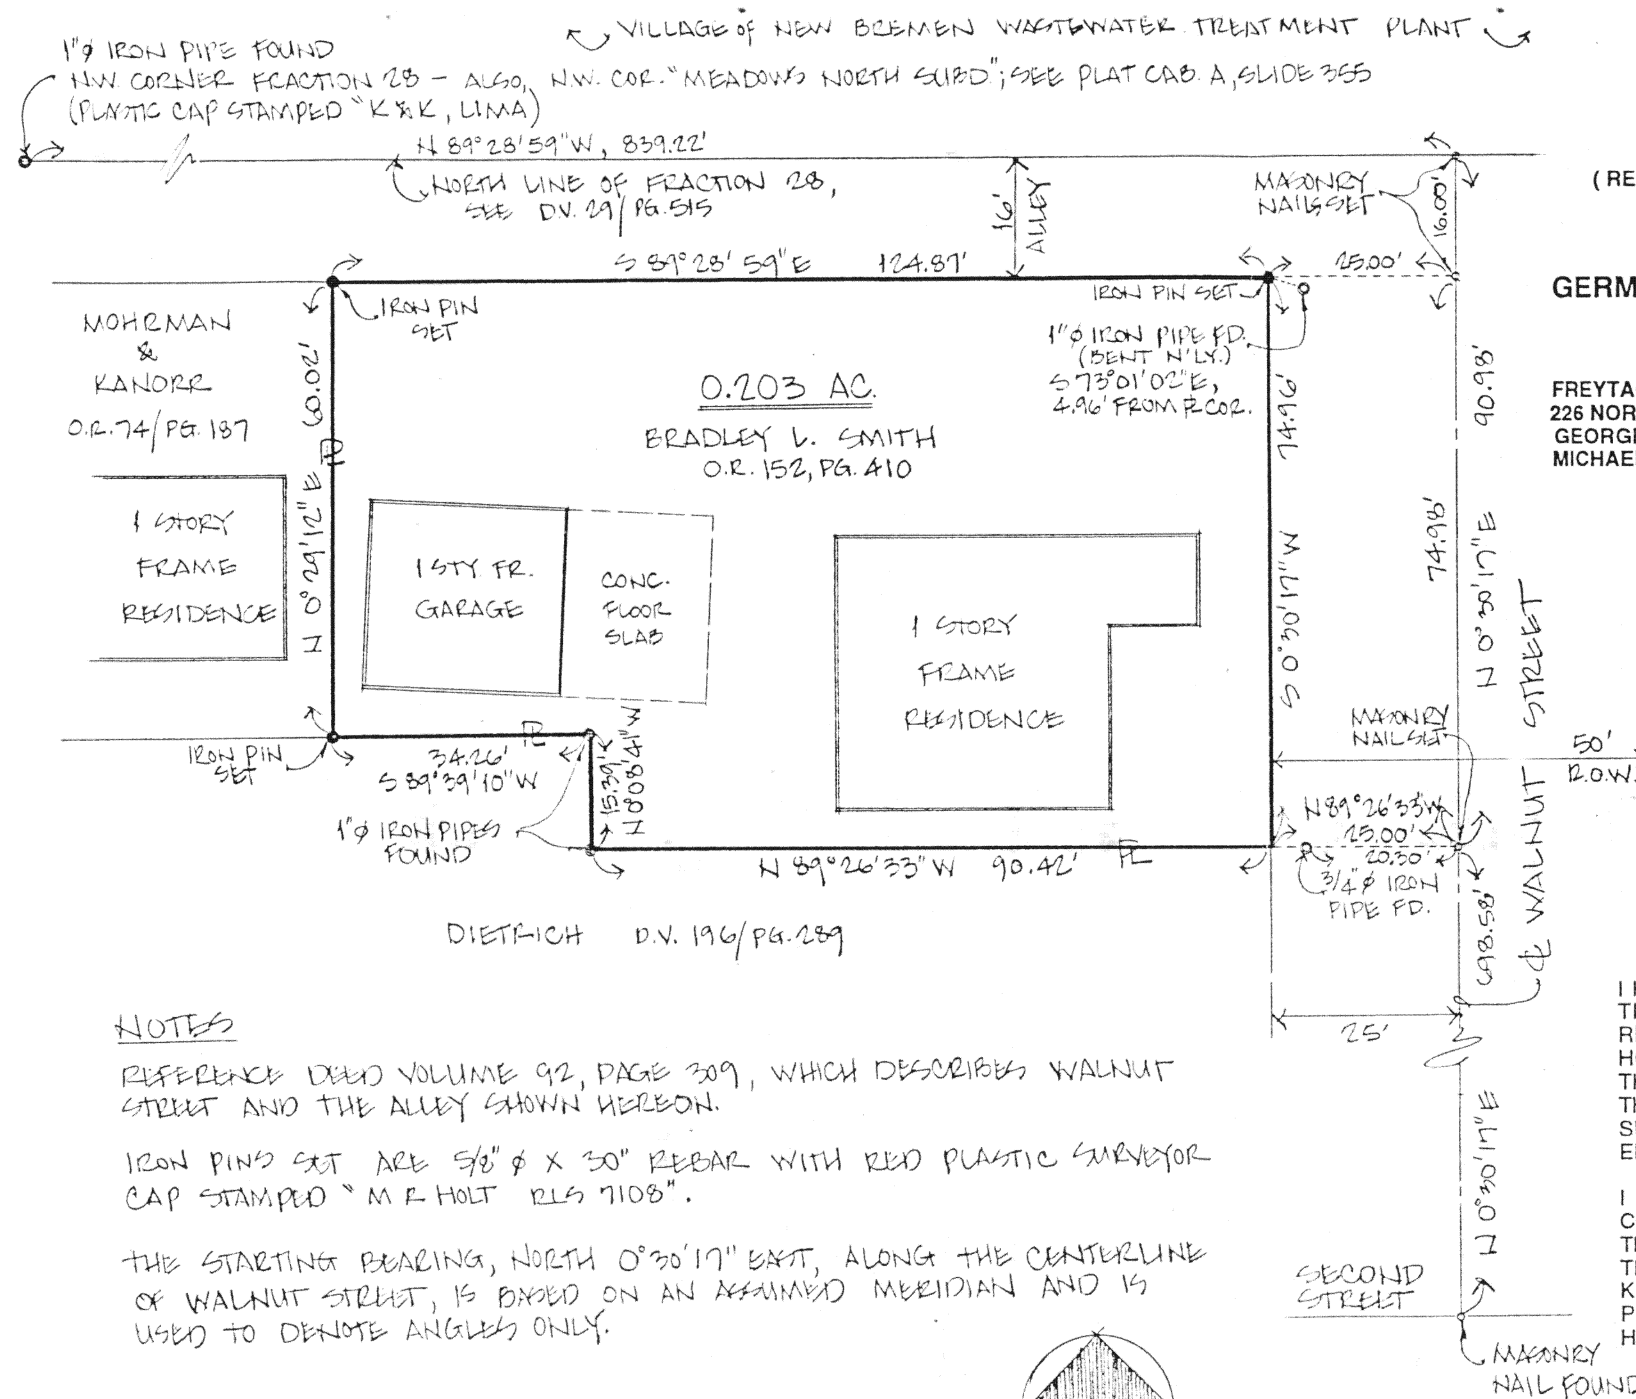 VILLAGE of NEW BREMEN WASTEWATER TREATMENT PLANT
1"ø IRON PIPE FOUND
N.W. CORNER FRACTION 28 - ALSO, N.W. COR. "MEADOWS NORTH SUBD."; SEE PLAT CAB. A, SLIDE 355
(PLASTIC CAP STAMPED "K & K, LIMA)
N 89°28'59"W, 839.22'
NORTH LINE OF FRACTION 28,
SEE D.V. 29/PG. 515
16'
ALLEY
MASONRY
NAILS SET
16.00'
(RE
S 89°28'59"E 124.87'
25.00'
IRON PIN
SET
IRON PIN SET
1"ø IRON PIPE FD.
(BENT N'LY.)
S 73°01'02"E,
4.96' FROM PL COR.
GERM
MOHRMAN
&
KANORR
O.R. 74/PG. 187
N 0°29'12"E 60.02'
PL
0.203 AC.
BRADLEY L. SMITH
O.R. 152, PG. 410
74.96'
S 0°30'17" W
90.98'
74.98'
N 0°30'17"E
FREYTA
226 NOR
GEORGI
MICHAE
1 STORY
FRAME
RESIDENCE
1 STY. FR.
GARAGE
CONC.
FLOOR
SLAB
1 STORY
FRAME
RESIDENCE
℄ WALNUT STREET
MASONRY
NAIL SET
50'
R.O.W.
IRON PIN
SET
PL
34.26'
S 89°39'10"W
15.39'
N 0°08'41"W
1"ø IRON PIPES
FOUND
N 89°26'33"W 90.42'
PL
N 89°26'33"W
25.00'
20.30'
3/4"ø IRON
PIPE FD.
698.58'
DIETRICH D.V. 196/PG. 289
25'
NOTES
REFERENCE DEED VOLUME 92, PAGE 309, WHICH DESCRIBES WALNUT
STREET AND THE ALLEY SHOWN HEREON.
IRON PINS SET ARE 5/8" ø X 30" REBAR WITH RED PLASTIC SURVEYOR
CAP STAMPED "M R HOLT RLS 7108".
THE STARTING BEARING, NORTH 0°30'17" EAST, ALONG THE CENTERLINE
OF WALNUT STREET, IS BASED ON AN ASSUMED MERIDIAN AND IS
USED TO DENOTE ANGLES ONLY.
N 0°30'17"E
SECOND
STREET
MASONRY
NAIL FOUND
I
TH
RE
H
TH
TH
S
E
I
C
T
T
K
P
H